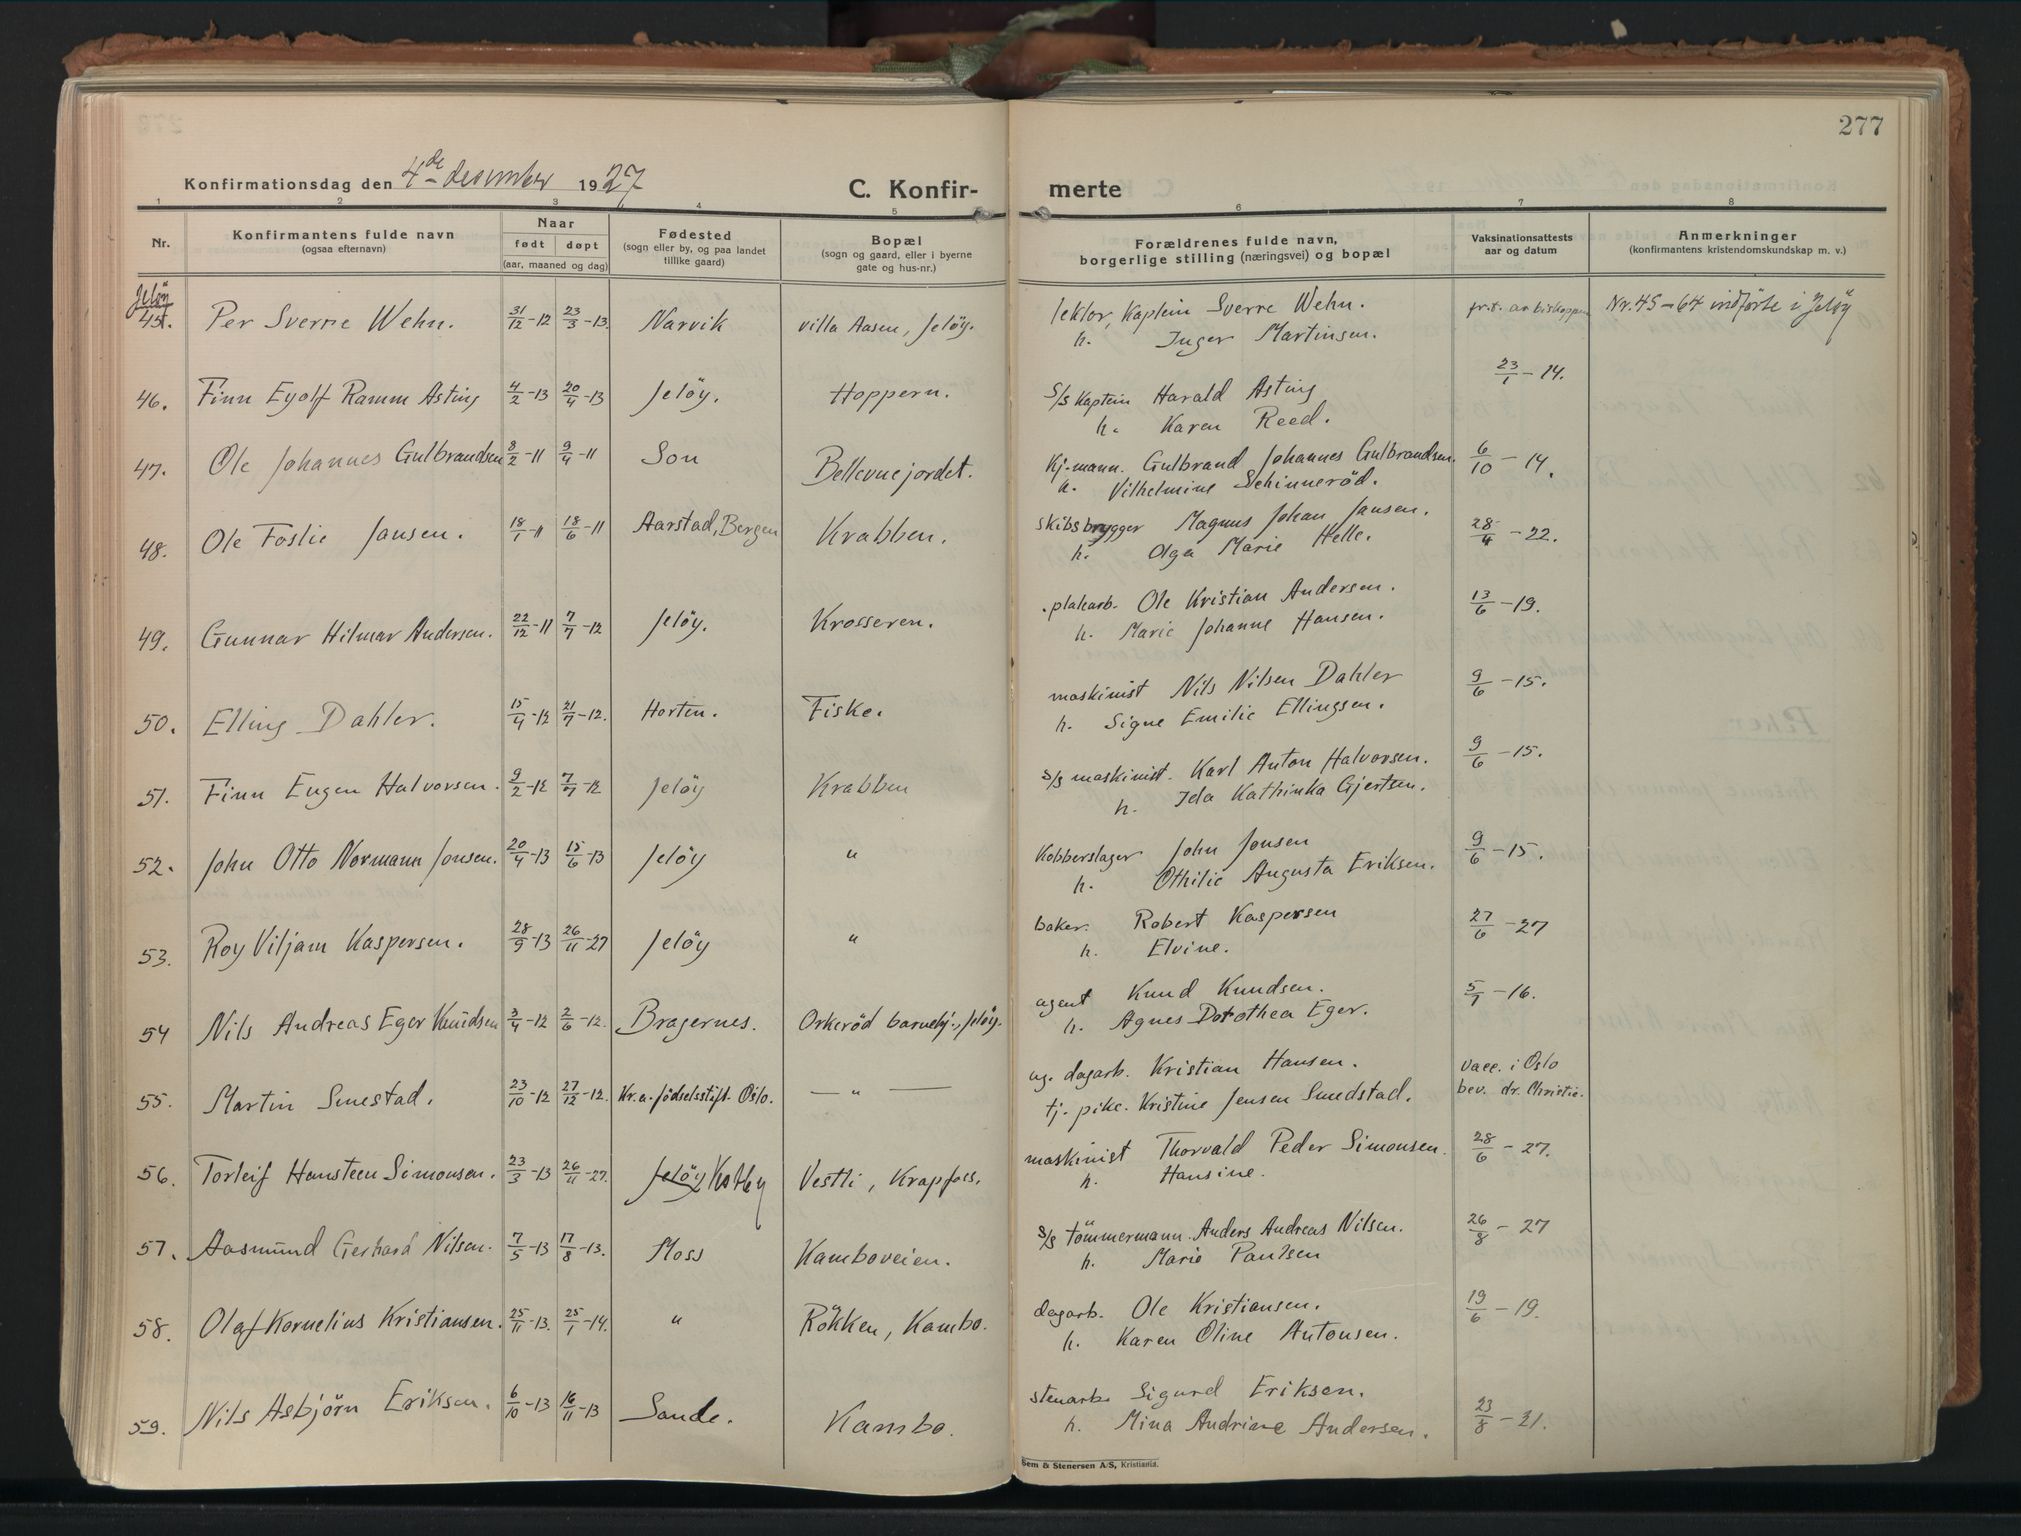 277
Konfirmationsdag den 4de desember 1927
C. Konfir- merte
1 2 3 4 5 6 7 8
Nr.
Konfirmantens fulde navn
(ogsaa efternavn)
Naar
født døpt
(aar, maaned og dag)
Fødested
(sogn eller by, og paa landet
tillike gaard)
Bopæl
(sogn og gaard, eller i byerne
gate og hus-nr.)
Forældrenes fulde navn,
borgerlige stilling (næringsvei) og bopæl
Vaksinationsattests
aar og datum
Anmerkninger
(konfirmantens kristendomskundskap m. v.)
Jeløy
45. Per Sverre Wehn. 31/12-12 23/3-13. Narvik villa Aasen, Jeløy. lektor, Kaptein Sverre Wehn. fr.t. av biskoppen Nr. 45-64 indförte i Jeløy
h. Inger Martinsen.
46. Finn Eyolf Ramm Asting 4/2-13 20/4-13 Jeløy. Hoppern. S/s Kaptein Harald Asting 23/1-14.
h. Karen Reed.
47. Ole Johannes Gulbrandsen 8/2-11 9/4-11 Son Bellevuejordet. Kj-mann. Gulbrand Johannes Gulbrandsen. 6/10-14.
h. Vilhelmine Schinneröd.
48. Ole Foslie Jansen. 18/1-11 18/6-11 Aarstad, Bergen Krabben. skibsbrygger Magnus Johan Jansen. 28/4-22.
h. Olga Marie Helle.
49. Gunnar Hilmar Andersen. 22/12-11 7/7-12 Jeløy. Krosseren. plakarb. Ole Kristian Andersen. 13/6-19.
h. Marie Johanne Hansen.
50. Elling Dahler. 15/4-12 21/7-12. Horten. Fiske. maskinist Nils Nilsen Dahler 9/6-15.
h. Signe Emilie Ellingsen.
51. Finn Eugen Halvorsen. 9/2-12 7/7-12 Jeløy Krabben s/s maskinist. Karl Anton Halvorsen. 9/6-15.
h. Ida Kathinka Gjertsen.
52. John Otto Normann Jonsen. 20/4-13 15/6-13 Jeløy " Kobberslager John Jonsen 9/6-15.
h. Othilie Augusta Eriksen.
53. Roy Viljam Kaspersen. 28/9-13 26/11-27 Jeløy " baker. Robert Kaspersen 27/6-27
h. Elvine.
54 Nils Andreas Eger Knudsen 3/4-12 2/6-12. Bragernes. Orkeröd barnehj., Jeløy. agent Knud Knudsen. 5/7-16.
h. Agnes Dorothea Eger.
55. Martin Smestad. 23/10-12 27/12-12. Kr.a. födselsstift. Oslo. — " — ug. dagarb. Kristian Hansen. vacc. i Oslo
tj. pike. Kristine Jensen Smedstad. bev. dr. Christie.
56. Torleif Hansteen Simonsen. 23/3-13 26/11-27. Jeløy Vestli, Krapfoss. maskinist Thorvald Peder Simonsen. 28/6-27.
h. Hansine.
57. Aasmund Gerhard Nilsen. 7/5-13 17/8-13. Moss Kamboveien. s/s tömmermann. Anders Andreas Nilsen. 26/8-27
h. Marie Paulsen
58. Olaf Kornelius Kristiansen. 25/11-13. 25/1-14. " Rökken, Kambo. dagarb. Ole Kristiansen. 19/6-19.
h. Karen Oline Antonsen.
59. Nils Asbjörn Eriksen. 6/10-13 16/11-13 Sande. Kambo. stenarb. Sigurd Eriksen. 23/8-21.
h. Mina Andrine Andersen.
Sem & Stenersen A/S, Kristiania.